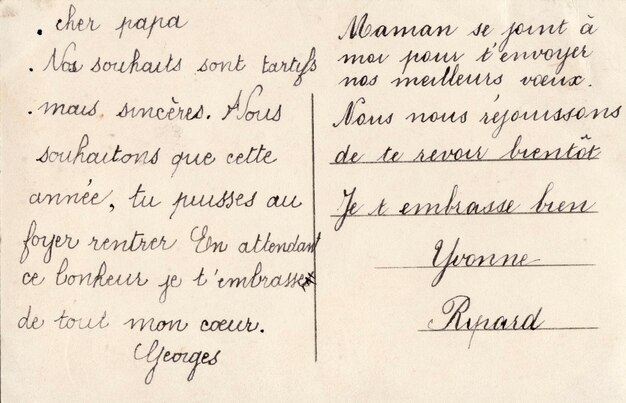 . cher papa
. Nos souhaits sont tartifs
. mais, sincères. Nous
souhaitons que cette
année, tu puisses au
foyer rentrer En attendant
ce bonheur je t'embrasse
de tout mon cœur.
Georges
Maman se joint à
moi pour t'envoyer
nos meilleurs vœux.
Nous nous réjouissons
de te revoir bientôt
Je t embrasse bien
Yvonne
Ripard